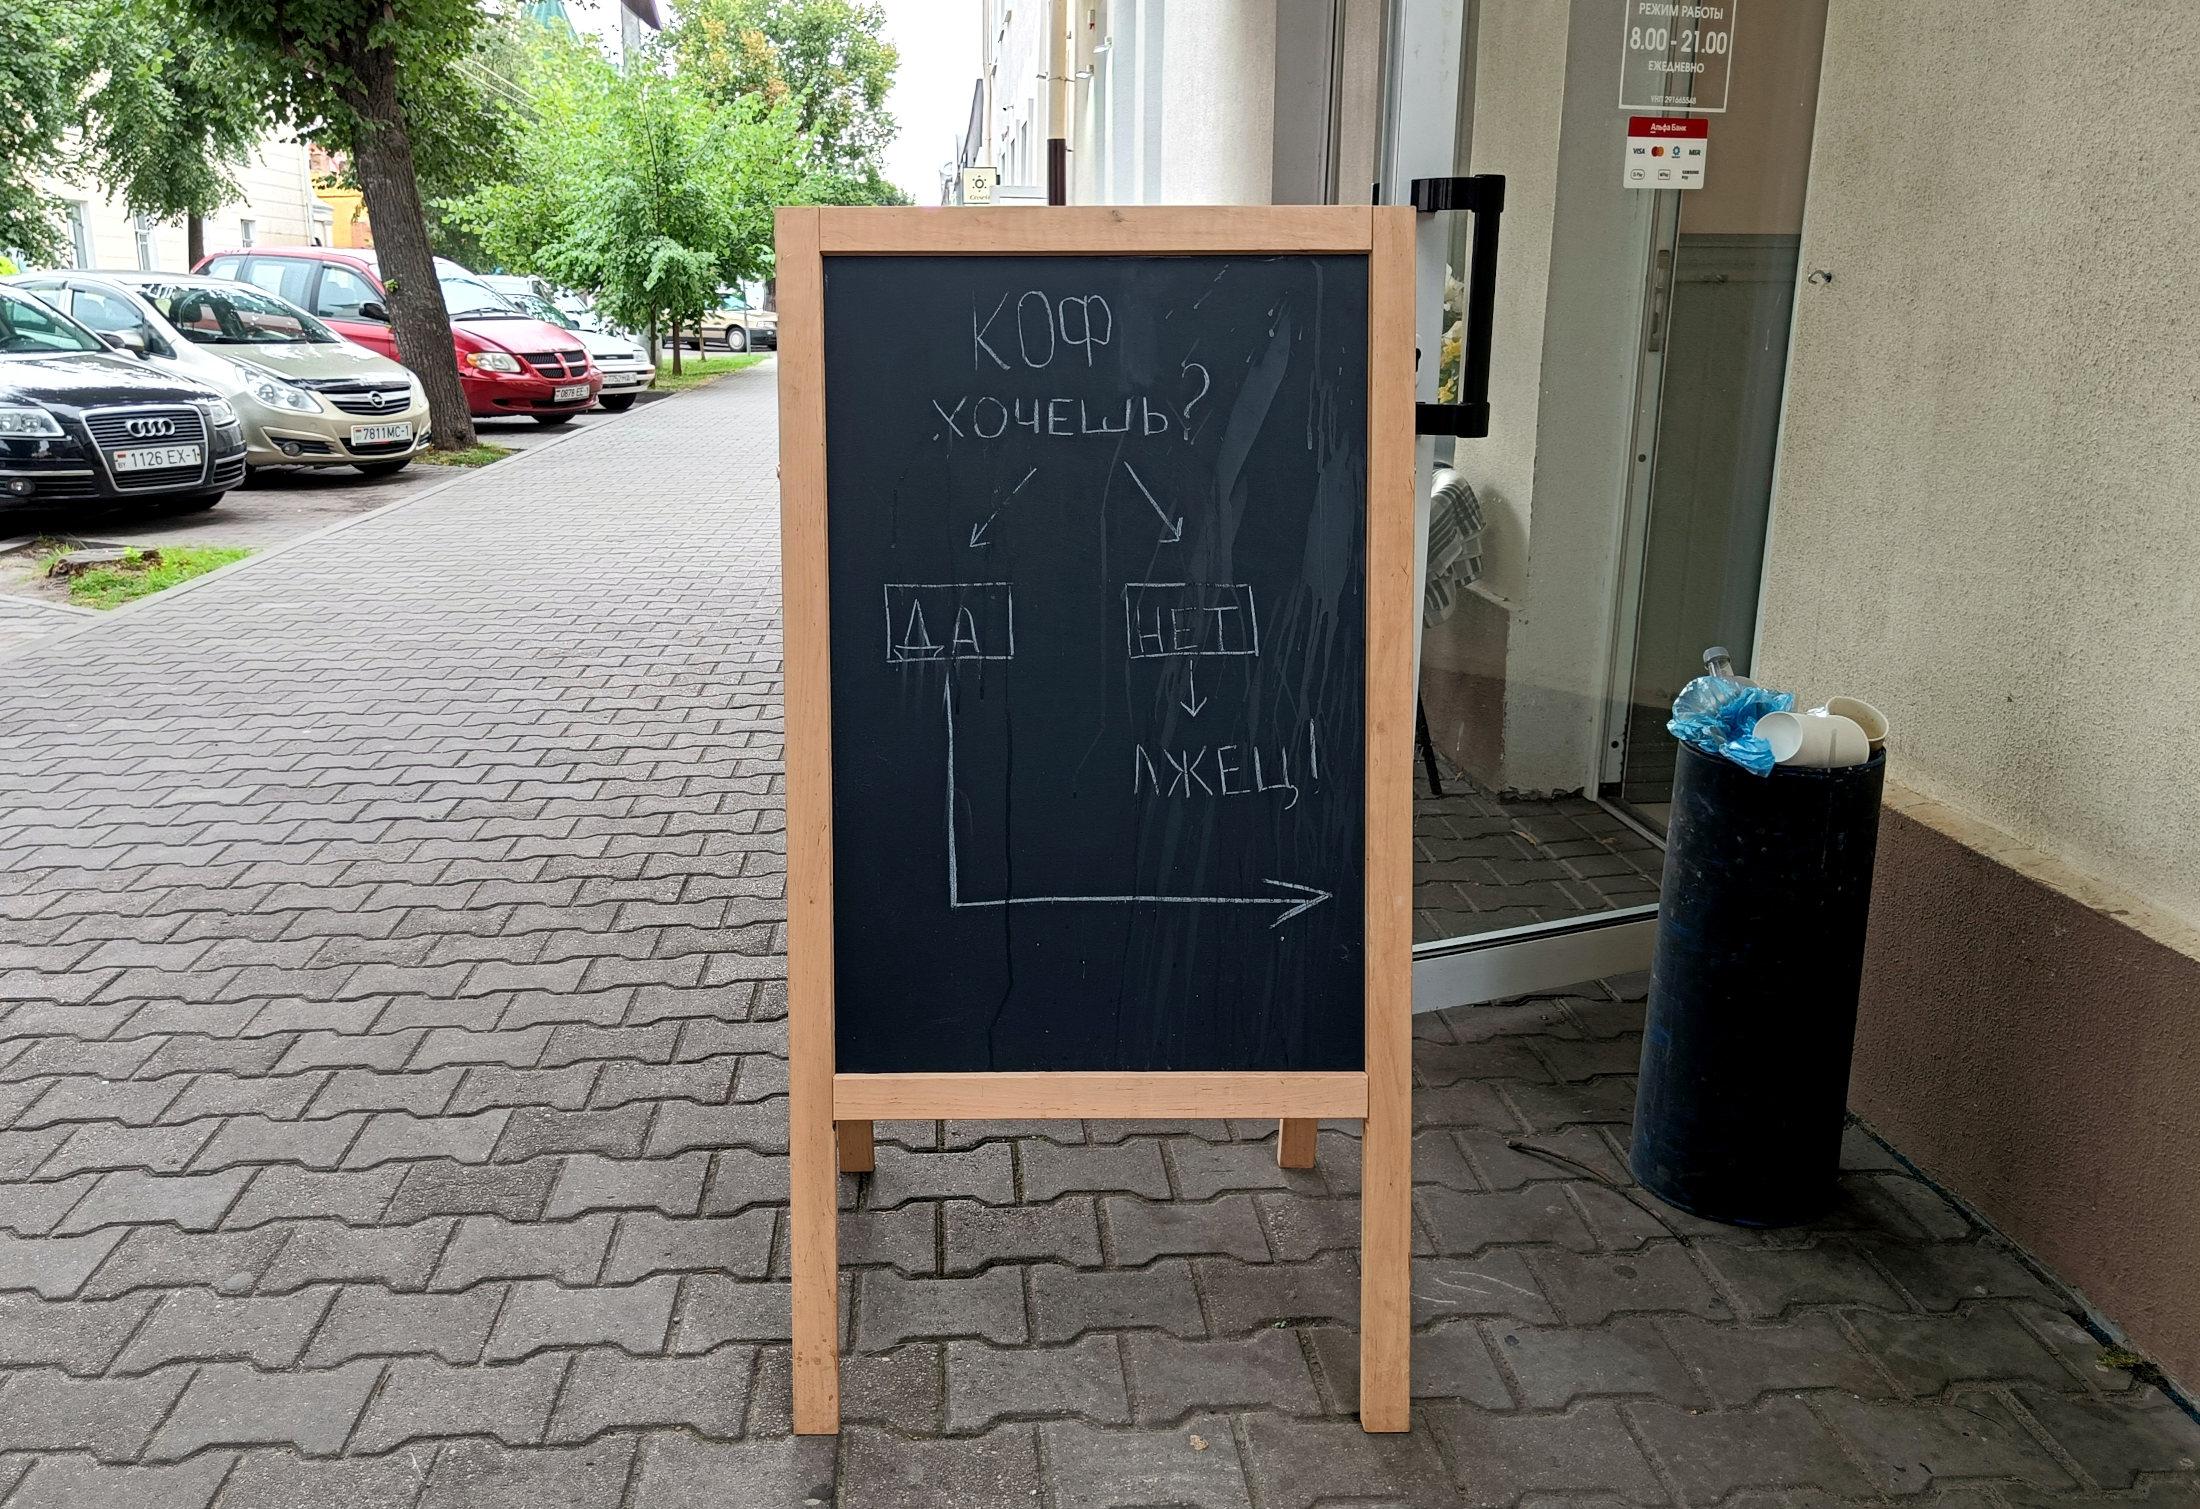 РЕЖИМ РАБОТЫ
8.00 - 21.00
ЕЖЕДНЕВНО
УНП 291665548
Альфа Банк
VISA
КОФ
ХОЧЕШЬ?
ДА
НЕТ
ЛЖЕЦ!
1126 EX-1
7811MC-1
0878 EE-1